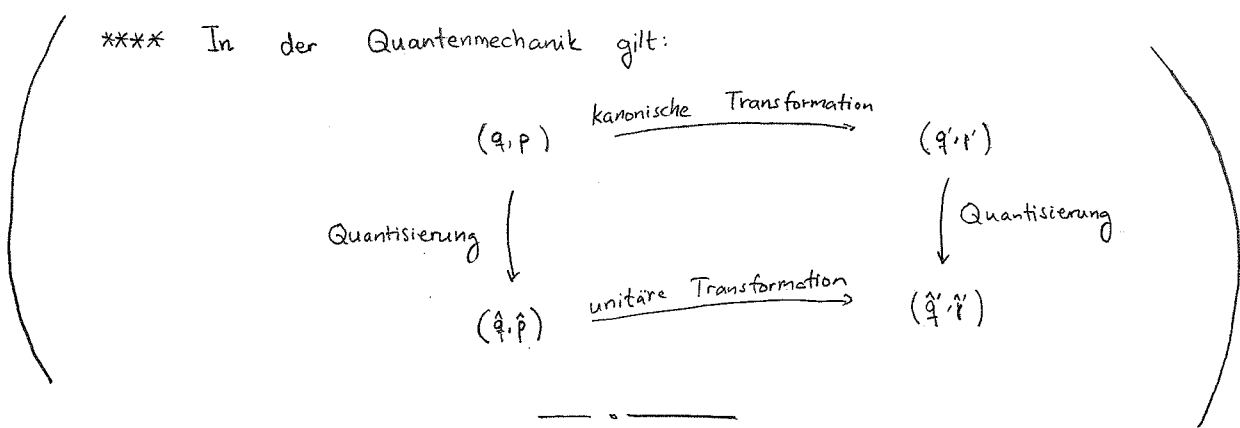 **** In der Quantenmechanik gilt:
kanonische Transformation
(q, p) (q', p')
Quantisierung Quantisierung
unitäre Transformation
(q̂, p̂) (q̂', p̂')